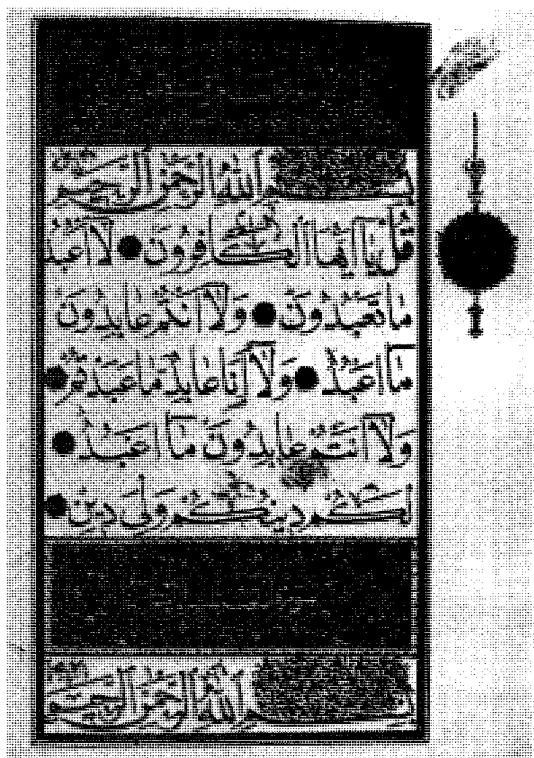 بِسْمِ اللهِ الرَّحْمٰنِ الرَّحِيمِ
قُلْ يَا اَيُّهَا الْكَافِرُونَ لَا اَعْبُدُ
مَا تَعْبُدُونَ وَلَا اَنْتُمْ عَابِدُونَ
مَا اَعْبُدُ وَلَا اَنَا عَابِدٌ مَا عَبَدْتُمْ
وَلَا اَنْتُمْ عَابِدُونَ مَا اَعْبُدُ
لَكُمْ دِينُكُمْ وَلِيَ دِينِ
بِسْمِ اللهِ الرَّحْمٰنِ الرَّحِيمِ